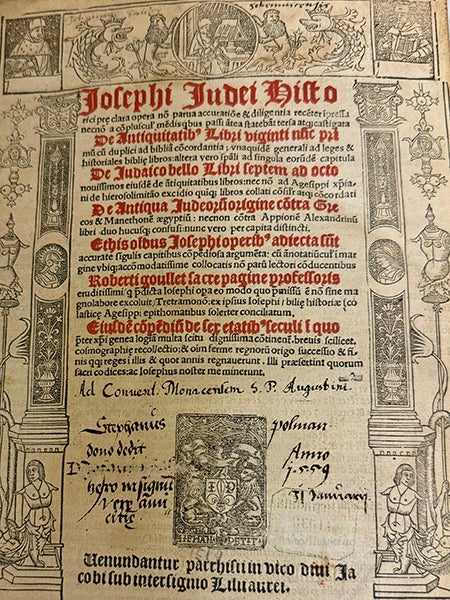 Josephi Judei Histo
rici pre clara opera nō parua accuratiōe & diligentia recēter ipressa
necnō a cōpluscul' mēdis qbus passi ātea statebāt tersa atq; castigata
De Antiquitatib⁹ Libri viginti nūc prī
mū cū duplici ad bibliā cōcordantia; vnaquidē generali ad leges &
historiales biblie libros: altera vero spāli ad singula eorūdē capitula
De Judaico bello Libri septem ad octo
nouissimos eiusdē de ātiquitatibus libros: nec nō ad Agesippi xp̄ia/
ni de hierosolimitāo excidio quīq; libros collati cōsīst' atq; cōcordati
De Antiqua Judeorū origine cōtra Gre
cos & Manethonē ægyptiū: necnon contra Appionē Alexandrinū
libri duo hucusq; confusi: nunc vero per capita distincti.
Ethis oībus Josephi operib⁹ adiecta sūt
accurate sīgulis capitibus cōpēdiosa argumēta; cū ānotatiūcul' i mar
gine vbiq; accōmodatissime collocatis nō parū lectori cōducentibus
Roberti goullet sacre pagine professoris
eruditissimi q prædicta Iosephi opa eo modo quo pinissū ē nō sine ma
gno labore excoluit, Tretramonō: ex ipsius Iosephi; bible historiæ scō
lasticæ Agesippi epithomatibus solerter conciliatum,
Eiusdē cōpēdiū de sex etatib⁹ seculi i quo
pter xp̄i genealogiā multa scitu dignissima cōtinent. breuis scilicet
cosmographie recollectio; & oim ferme regnorū origo successio & fi/
nis qq; reges illis & quot annis regnauerunt. Illi præsertim quorum
sacri codices: ac Iosephus noster meminerunt,
Ad Convent. Monacensem S. P. Augustini
Stephanus polman
dono dedit Anno
1559
Januarij
IEHAN PETIT
Uenundantur parrhisii in vico diui Ja
cobi sub intersignio Lilii aurei.